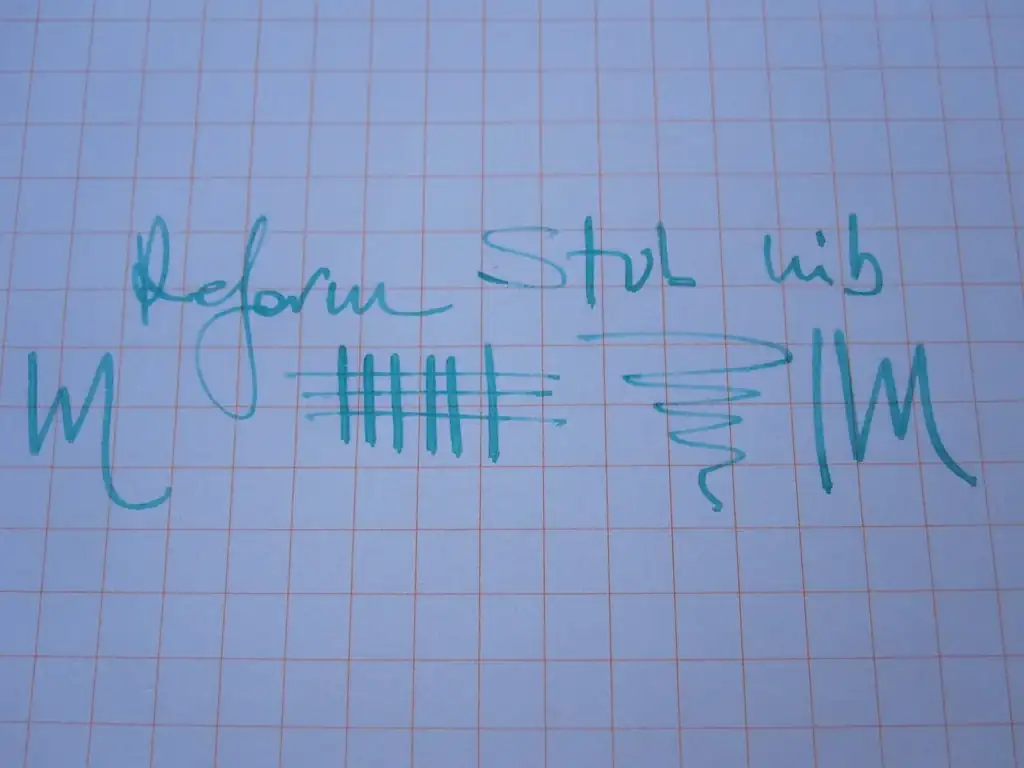 Reform Stub nib